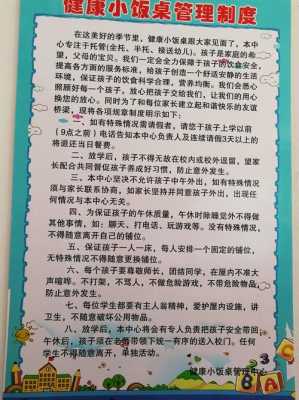 健康小饭桌管理制度
在这美好的季节里，健康小饭桌跟大家见面了，本中
心专注于托管(全托、半托、接送幼儿)。孩子是家庭的希
望，父母的宝贝。我们一定会全力保障孩子的饮食安全
提高各方面的服务标准，给孩子创造一个舒适安静的生活
环境，保证孩子的饮食科学合理，营养均衡。我们会悉心
照顾好每一个孩子，放心把孩子交给我们，让我们的用心
换您的放心。同时为了和每位家长建立起和谐快乐的友谊
桥梁，应将各项规章制度明示如下：
一、如有特殊情况需请假者，请您于孩子上学前以
（9点之前）电话告知本中心负责人及连续请假3天以上的
将退还当日餐费。
二、放学后，孩子不得无故在校内或校外逗留，望家
长配合共同督促孩子养成好习惯，防止意外发生。
三、本中心坚决不允许孩子中午外出，如有特殊情况
须与家长联系协商，如家长坚持并同意孩子外出，出现任
何情况与本中心无关。
四、为保证孩子的午休质量，午休时除睡觉外不得做
其他事情，如：聊天、打电话、玩游戏等。没有特殊情况，
不得随意离开自己的铺位。
五、保证孩子一人一床，每人安排一个固定的铺位，
无特殊情况不得随意更换铺位。
六、每个孩子要尊敬师长，团结同学，在屋内不准大
声喧哗。不打架，不骂人，不做危险游戏，不带危险物品，
防止意外发生。
七、每位学生都要有主人翁精神，爱护屋内设施，讲
卫生，不随意破坏公用物品。
八、放学后，本中心将会有专人负责把孩子安全带回
午休后，孩子须在老师带领下统一有序的送入校门。任何
学生不得随意离开，单独活动。
健康小饭桌管理中心
3
8
A
C